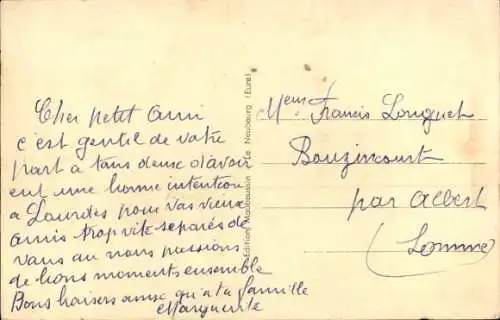 Cher petit ami
c'est gentil de votre
part a tous deux d'avoir
eut une bonne intention
a Lourdes pour vos vieux
amis trop vite separés de
vous au nous passions
de bons moments ensemble
Bons baisers ainsi qu'a ta famille
Marguerite
Editions Marcoussin - Le Neubourg (Eure)
Mons Francis Longuet
Bouzincourt
par Albert
(Somme)